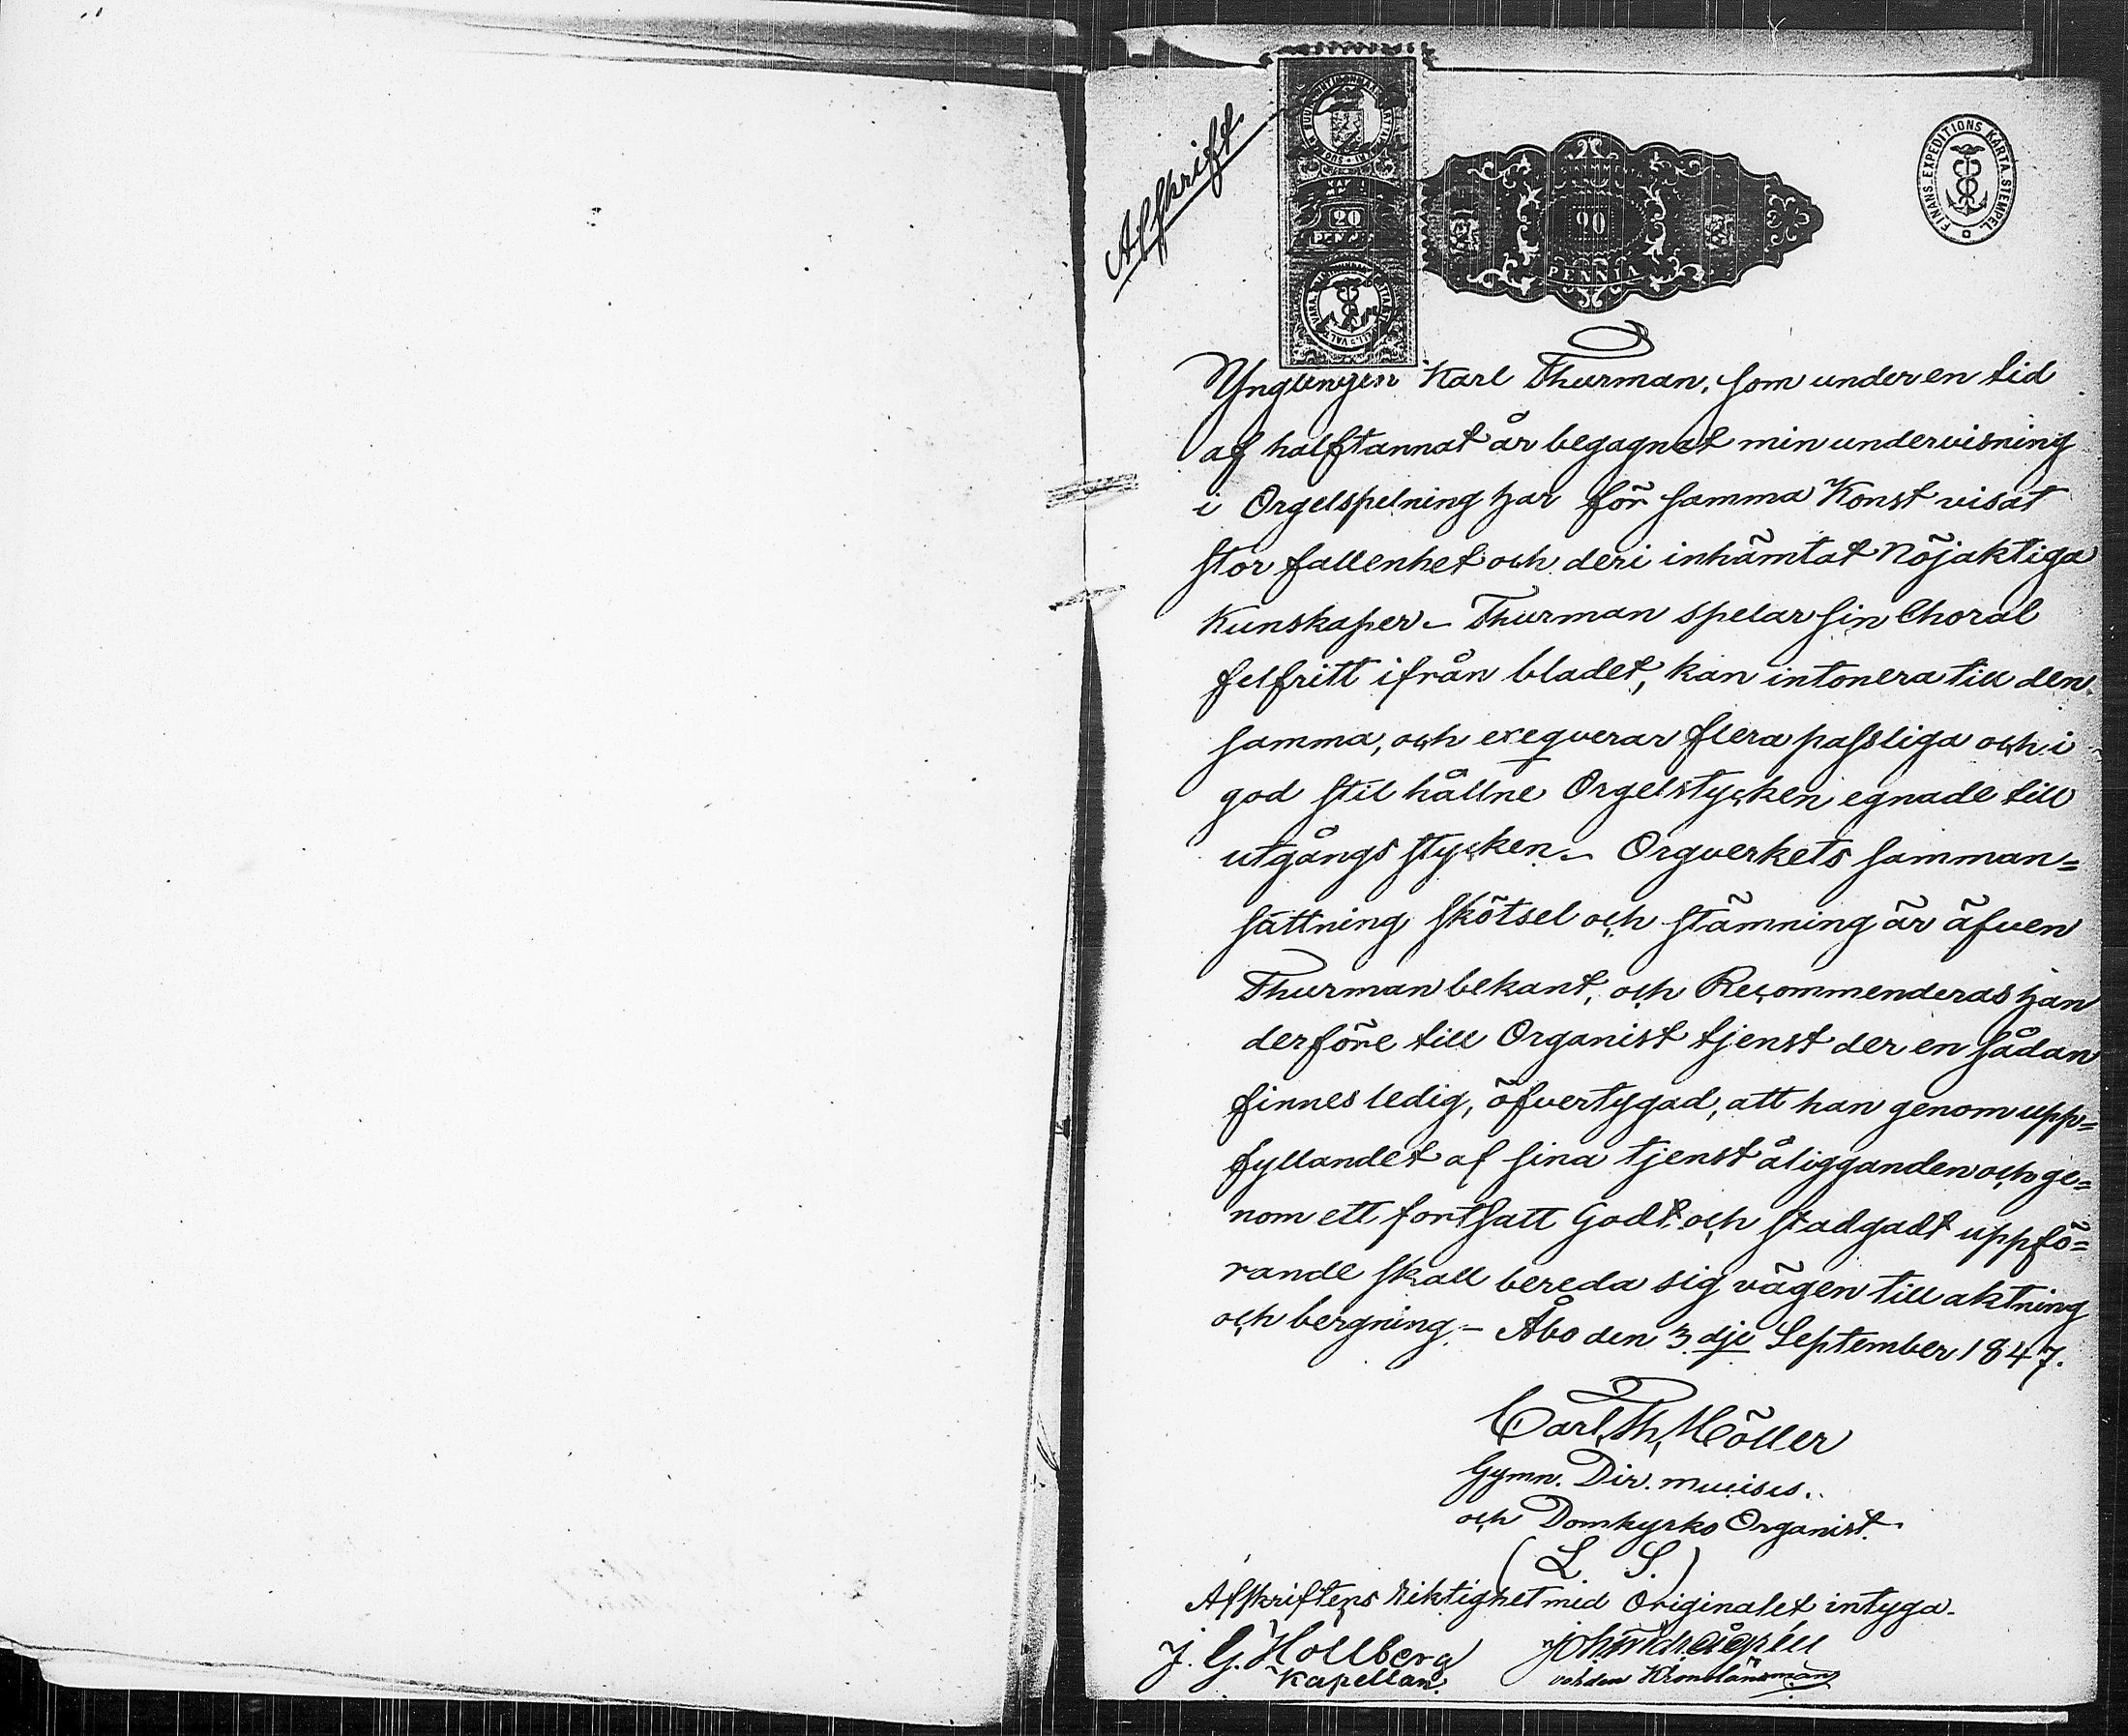 Afskrift.
20
PENNIÄ
20
PENNIÄ
FINANS.EXPEDITIONS KARTA.STEMPEL
Ynglingen Karl Thurman, som under en tid
af halftannat år begagnat min undervisning
i Orgelspelning har för samma Konst visat
stor fallenhet och deri inhämtat Nöjaktiga
Kunskaper. - Thurman spelar sin Choral
felfritt ifrån bladet, kan intonera till den
samma, och exeqverar flera passliga och i
god stil hållne Orgelstycken egnade till
utgångs stycken. - Orgverkets samman=
sättning skötsel och stämning är äfven
Thurman bekant, och Recommenderas han
derföre till Organist tjenst der en sådan
finnes ledig, öfvertygad, att han genom upp=
fyllandet af sina tjenst åligganden och ge=
nom ett fortsatt Godt och stadgadt uppfö=
rande skall bereda sig vägen till aktning
och bergning. - Åbo den 3 dje September 1847.
Carl Th. Möller
Gymn. Dir. musises.
och Domkyrko Organist.
(L. S.)
Afskriftens riktighet med Originalet intyga.
J. G. Hollberg
Kapellan.
Kronolänsman